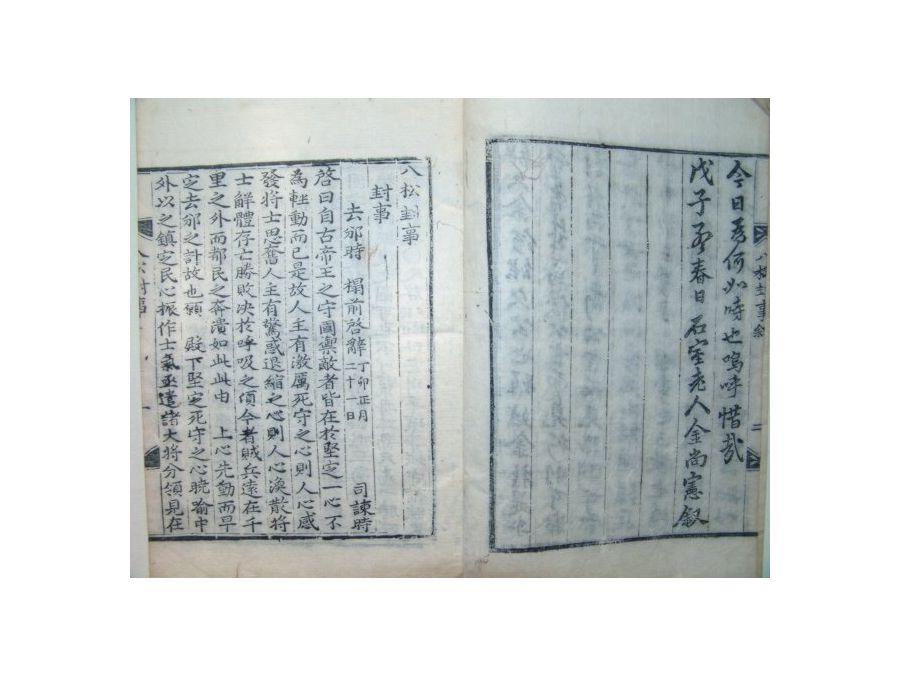 今日爲何如時也嗚呼惜哉
戊子孟春日石室老人金尚憲叙
八松封事
封事
去邠時　榻前啓辭丁卯正月二十一日　司諫時
啓曰自古帝王之守國禦敵者皆在於堅定一心不
為輕動而已是故人主有激厲死守之心則人心感
發將士思奮人主有驚惑退縮之心則人心渙散將
士解體存亡勝敗决於呼吸之頃今者賊兵遠在千
里之外而都民之奔潰如此此由　上心先動而早
定去邠之計故也願　殿下堅定死守之心曉喻中
外以之鎮定民心振作士氣亟遣諸大將分領見在
八松封事
一